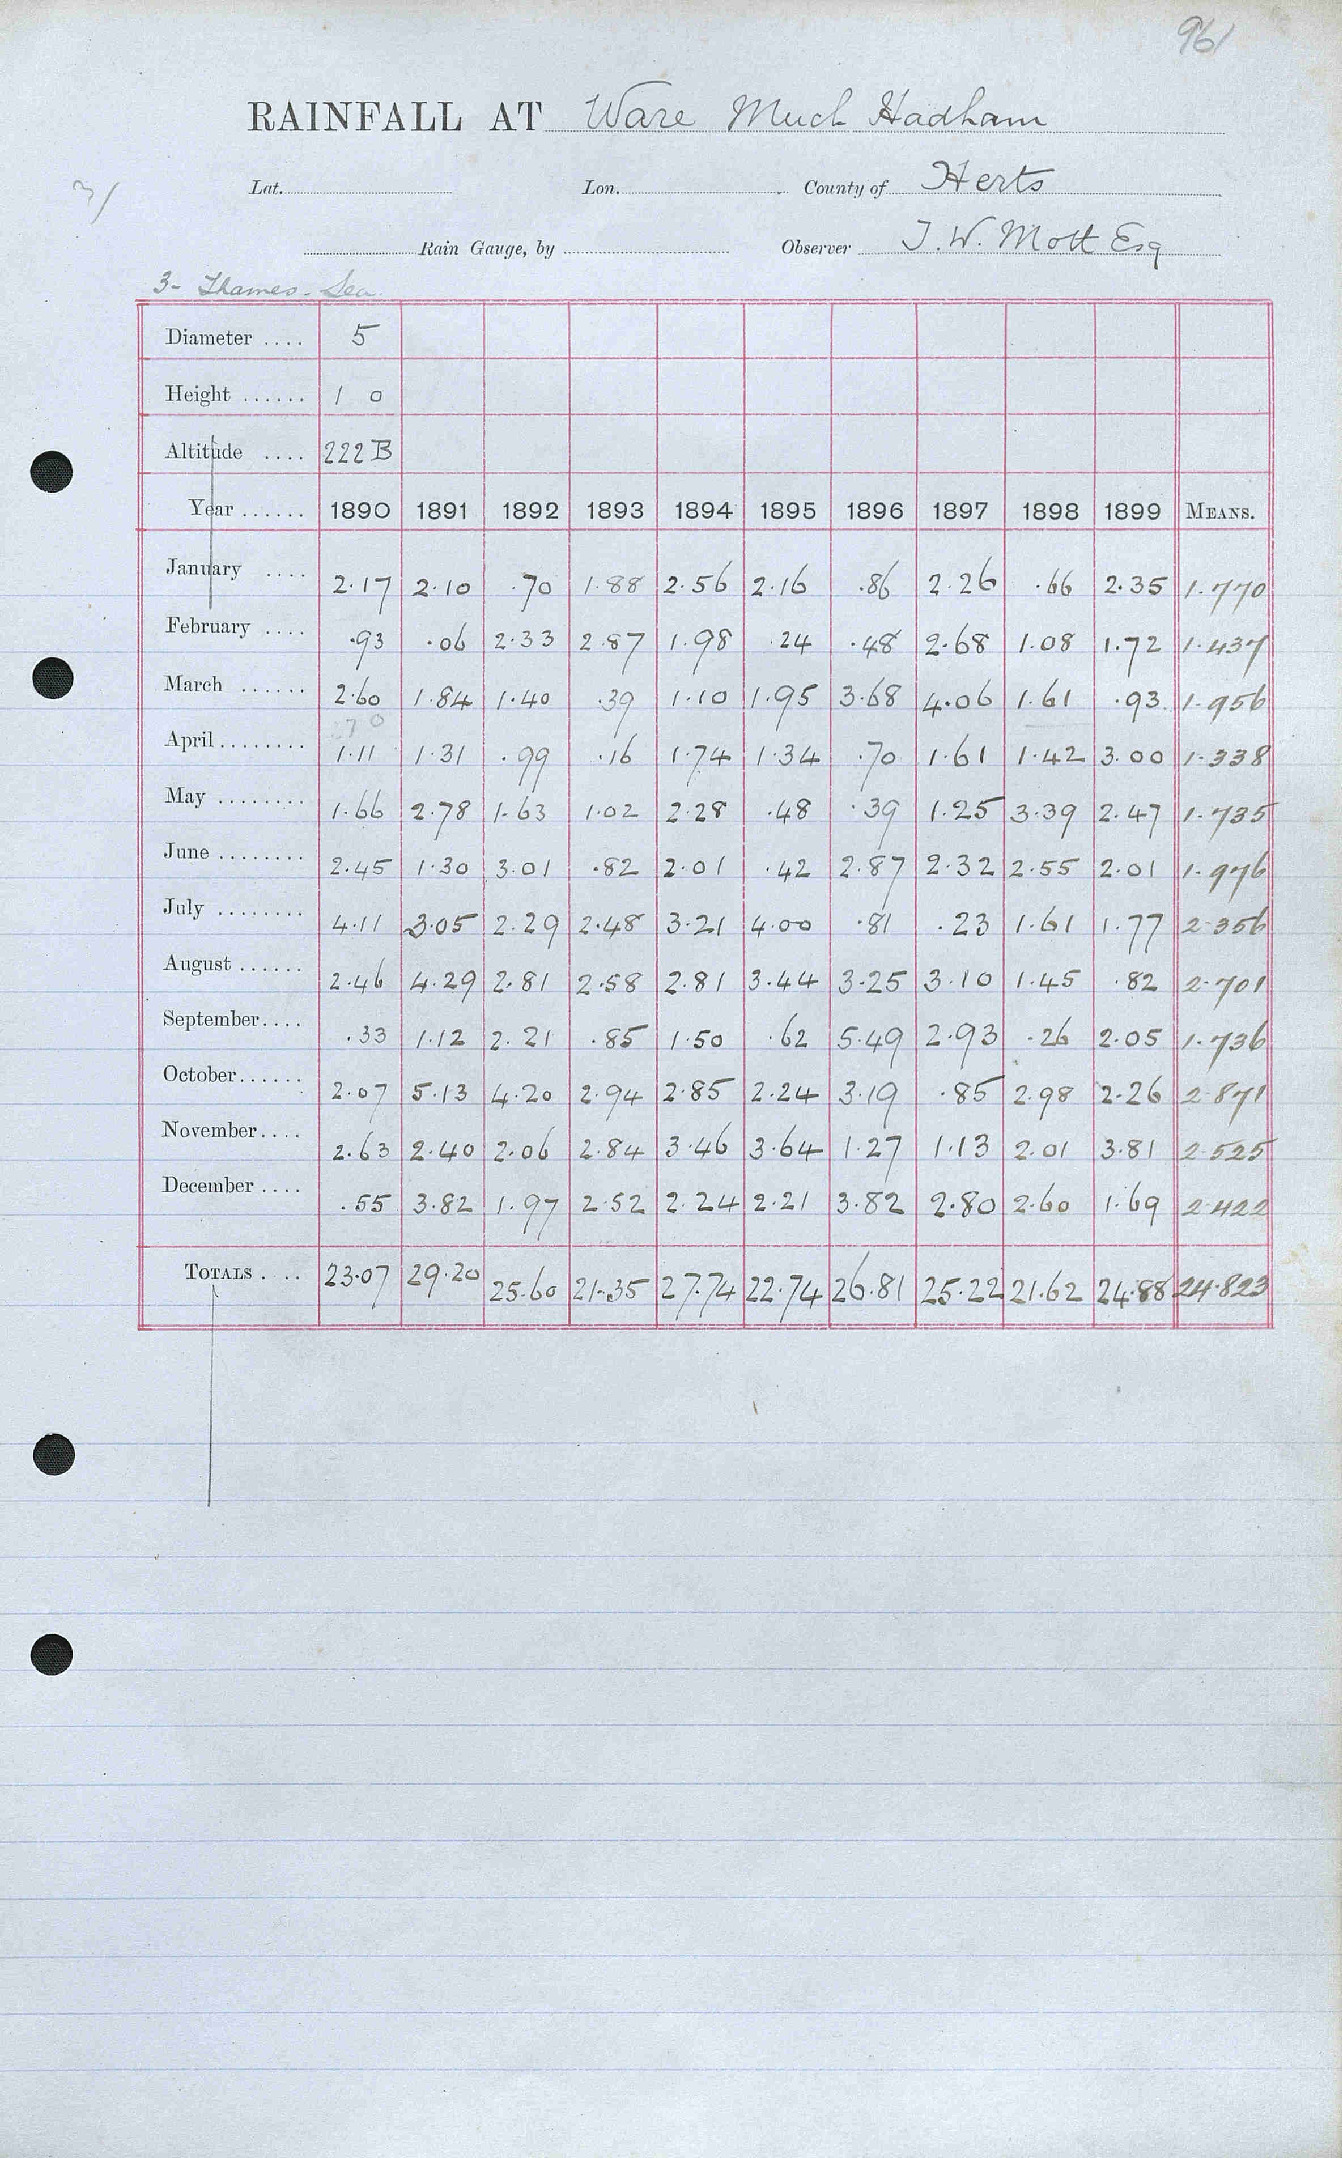 961
RAINFALL AT Ware Much Hadham
31
Lat. Lon. County of Herts
Rain Gauge, by Observer J. W. Mott Esq
3- Thames - Lea
Diameter .... 5
Height ...... 1 0
Altitude .... 222 B
Year ...... 1890 1891 1892 1893 1894 1895 1896 1897 1898 1899 MEANS.
January .... 2.17 2.10 .70 1.88 2.56 2.16 .86 2.26 .66 2.35 1.770
February .... .93 .06 2.33 2.87 1.98 .24 .48 2.68 1.08 1.72 1.437
March ...... 2.60 1.84 1.40 .39 1.10 1.95 3.68 4.06 1.61 .93 1.956
April ........ 1.11 1.31 .99 .16 1.74 1.34 .70 1.61 1.42 3.00 1.338
May ........ 1.66 2.78 1.63 1.02 2.28 .48 .39 1.25 3.39 2.47 1.735
June ........ 2.45 1.30 3.01 .82 2.01 .42 2.87 2.32 2.55 2.01 1.976
July ........ 4.11 3.05 2.29 2.48 3.21 4.00 .81 .23 1.61 1.77 2.356
August ...... 2.46 4.29 2.81 2.58 2.81 3.44 3.25 3.10 1.45 .82 2.701
September .... .33 1.12 2.21 .85 1.50 .62 5.49 2.93 .26 2.05 1.736
October ...... 2.07 5.13 4.20 2.94 2.85 2.24 3.19 .85 2.98 2.26 2.871
November .... 2.63 2.40 2.06 2.84 3.46 3.64 1.27 1.13 2.01 3.81 2.525
December .... .55 3.82 1.97 2.52 2.24 2.21 3.82 2.80 2.60 1.69 2.422
TOTALS .... 23.07 29.20 25.60 21.35 27.74 22.74 26.81 25.22 21.62 24.88 24.823